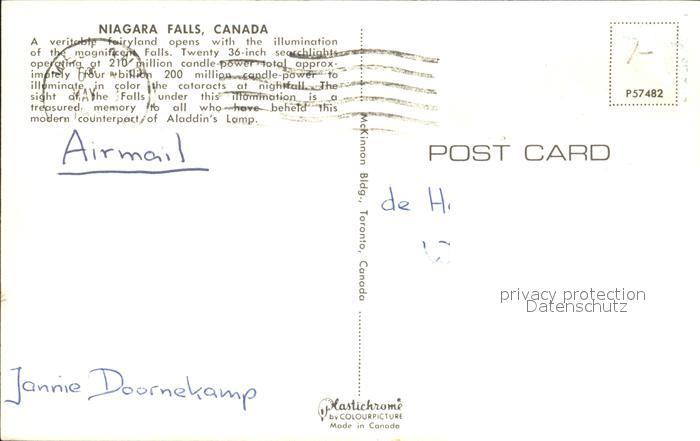 NIAGARA FALLS, CANADA
A veritable fairyland opens with the illumination
of the magnificent Falls. Twenty 36-inch searchlights
operating at 210 million candle-power total approx-
imately four billion 200 million candle-power to
illuminate in color the cataracts at nightfall. The
sight of the Falls under this illumination is a
treasured memory to all who have beheld this
modern counterpart of Aladdin's Lamp.
Airmail
Jannie Doornekamp
McKinnon Bldg., Toronto, Canada
Plastichrome
by COLOURPICTURE
Made in Canada
7-
P57482
POST CARD
de
privacy protection
Datenschutz